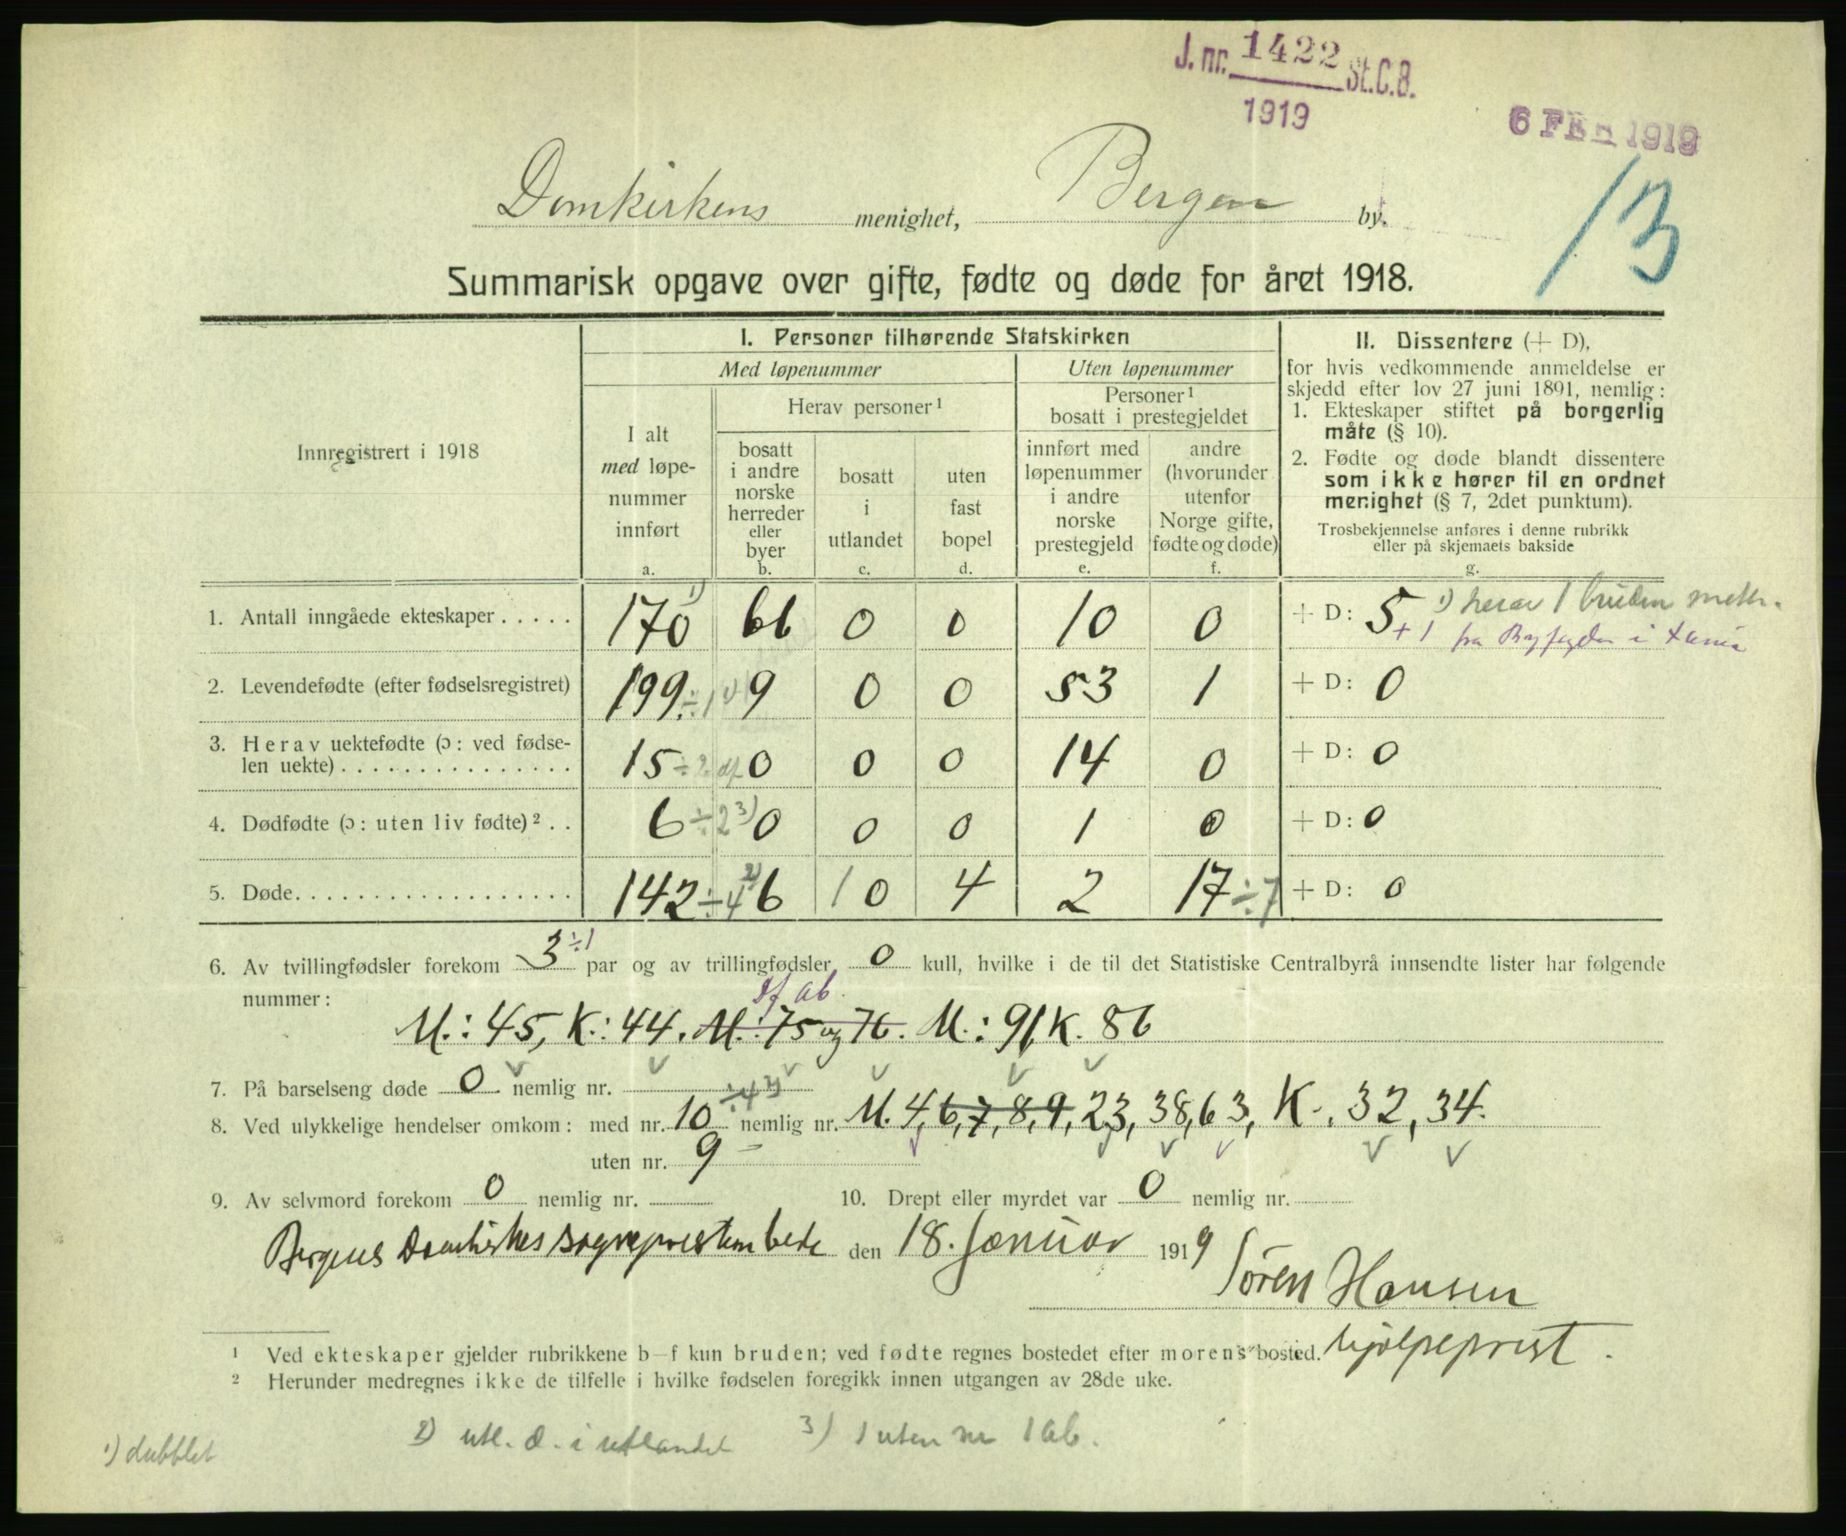 J. nr. 1422 St.C.B.
1919
6 FEB 1919
13
Domkirkens menighet, Bergen by.
Summarisk opgave over gifte, fødte og døde for året 1918.
Innregistrert i 1918
I. Personer tilhørende Statskirken
Med løpenummer
Uten løpenummer
I alt
med løpe-
nummer
innført
a.
Herav personer¹
bosatt
i andre
norske
herreder
eller
byer
b.
bosatt
i
utlandet
c.
uten
fast
bopel
d.
Personer¹
bosatt i prestegjeldet
innført med
løpenummer
i andre
norske
prestegjeld
e.
andre
(hvorunder
utenfor
Norge gifte,
fødte og døde)
f.
II. Dissentere (+ D),
for hvis vedkommende anmeldelse er
skjedd efter lov 27 juni 1891, nemlig:
1. Ekteskaper stiftet på borgerlig
måte (§ 10).
2. Fødte og døde blandt dissentere
som ikke hører til en ordnet
menighet (§ 7, 2det punktum).
Trosbekjennelse anføres i denne rubrikk
eller på skjemaets bakside
g.
1. Antall inngåede ekteskaper . . . . . 170 ¹) 66 0 0 10 0 + D: 5 +1 ¹) herav 1 bruden
fra i
2. Levendefødte (efter fødselsregistret) 199 ÷1 ¹) 9 0 0 53 1 + D: 0
3. Herav uektefødte (ɔ: ved fødse-
len uekte) . . . . . . . . . . . . . . . 15 ÷2 df 0 0 0 14 0 + D: 0
4. Dødfødte (ɔ: uten liv fødte) ² . . 6 ÷2 ³) 0 0 0 1 0 + D: 0
5. Døde. . . . . . . . . . . . . . . . . . 142 ÷4 ²) 6 1 0 4 2 17 ÷7 + D: 0
6. Av tvillingfødsler forekom 3 ÷1 par og av trillingfødsler 0 kull, hvilke i de til det Statistiske Centralbyrå innsendte lister har følgende
nummer:
df ab.
M.: 45, K.: 44. M.: 75 og 76. M.: 91, K. 86
7. På barselseng døde 0 nemlig nr.
8. Ved ulykkelige hendelser omkom: med nr. 10 ÷4 ²) nemlig nr. M. 4, 6, 7, 8, 9, 23, 38, 63, K. 32, 34.
uten nr. 9 –
9. Av selvmord forekom 0 nemlig nr.
10. Drept eller myrdet var 0 nemlig nr.
Bergens Domkirkes sogneprestembede den 18. januar 1919
Sören Hansen
hjelpeprest.
¹ Ved ekteskaper gjelder rubrikkene b–f kun bruden; ved fødte regnes bostedet efter morens bosted.
² Herunder medregnes ikke de tilfelle i hvilke fødselen foregikk innen utgangen av 28de uke.
¹) dubblet
²) utl. d. i utlandet
³) 1 uten nr 1 ab.